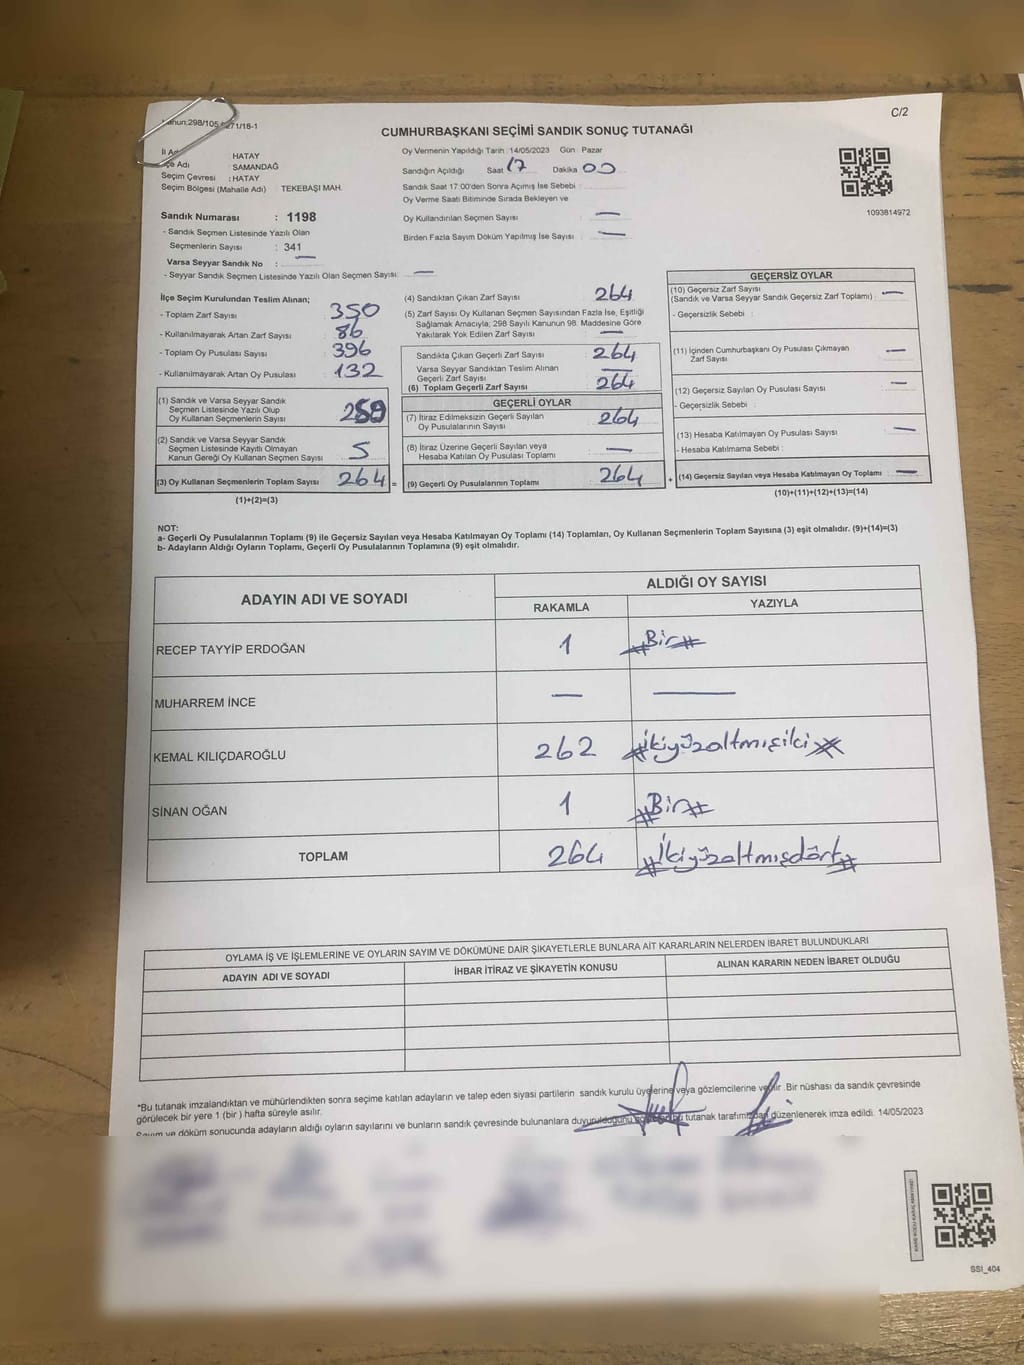 C/2
271/16-1
CUMHURBAŞKANI SEÇİMİ SANDIK SONUÇ TUTANAĞI
HATAY
İlçe Adı SAMANDAĞ
Seçim Çevresi : HATAY
Seçim Bölgesi (Mahalle Adı) : TEKEBAŞI MAH.
Sandık Numarası : 1198
- Sandık Seçmen Listesinde Yazılı Olan
Seçmenlerin Sayısı : 341
Varsa Seyyar Sandık No : —
- Seyyar Sandık Seçmen Listesinde Yazılı Olan Seçmen Sayısı : —
Oy Vermenin Yapıldığı Tarih : 14/05/2023 Gün : Pazar
Sandığın Açıldığı Saat 17 Dakika 00
Sandık Saat 17:00'den Sonra Açılmış İse Sebebi :
Oy Verme Saati Bitiminde Sırada Bekleyen ve
Oy Kullandırılan Seçmen Sayısı : —
Birden Fazla Sayım Döküm Yapılmış İse Sayısı : —
1093814972
İlçe Seçim Kurulundan Teslim Alınan;
- Toplam Zarf Sayısı : 350
- Kullanılmayarak Artan Zarf Sayısı : 86
- Toplam Oy Pusulası Sayısı : 396
- Kullanılmayarak Artan Oy Pusulası : 132
(1) Sandık ve Varsa Seyyar Sandık
Seçmen Listesinde Yazılı Olup
Oy Kullanan Seçmenlerin Sayısı 259
(2) Sandık ve Varsa Seyyar Sandık
Seçmen Listesinde Kayıtlı Olmayan
Kanun Gereği Oy Kullanan Seçmen Sayısı 5
(3) Oy Kullanan Seçmenlerin Toplam Sayısı 264 =
(1)+(2)=(3)
(4) Sandıktan Çıkan Zarf Sayısı 264
(5) Zarf Sayısı Oy Kullanan Seçmen Sayısından Fazla İse, Eşitliği
Sağlamak Amacıyla; 298 Sayılı Kanunun 98. Maddesine Göre
Yakılarak Yok Edilen Zarf Sayısı : —
Sandıkta Çıkan Geçerli Zarf Sayısı : 264
Varsa Seyyar Sandıktan Teslim Alınan
Geçerli Zarf Sayısı : —
(6) Toplam Geçerli Zarf Sayısı : 264
GEÇERLİ OYLAR
(7) İtiraz Edilmeksizin Geçerli Sayılan
Oy Pusulalarının Sayısı : 264
(8) İtiraz Üzerine Geçerli Sayılan veya
Hesaba Katılan Oy Pusulası Toplamı : —
(9) Geçerli Oy Pusulalarının Toplamı : 264 +
GEÇERSİZ OYLAR
(10) Geçersiz Zarf Sayısı
(Sandık ve Varsa Seyyar Sandık Geçersiz Zarf Toplamı) : —
- Geçersizlik Sebebi :
(11) İçinden Cumhurbaşkanı Oy Pusulası Çıkmayan
Zarf Sayısı : —
(12) Geçersiz Sayılan Oy Pusulası Sayısı : —
- Geçersizlik Sebebi :
(13) Hesaba Katılmayan Oy Pusulası Sayısı : —
- Hesaba Katılmama Sebebi :
(14) Geçersiz Sayılan veya Hesaba Katılmayan Oy Toplamı : —
(10)+(11)+(12)+(13)=(14)
NOT:
a- Geçerli Oy Pusulalarının Toplamı (9) ile Geçersiz Sayılan veya Hesaba Katılmayan Oy Toplamı (14) Toplamları, Oy Kullanan Seçmenlerin Toplam Sayısına (3) eşit olmalıdır. (9)+(14)=(3)
b- Adayların Aldığı Oyların Toplamı, Geçerli Oy Pusulalarının Toplamına (9) eşit olmalıdır.
ADAYIN ADI VE SOYADI ALDIĞI OY SAYISI
RAKAMLA YAZIYLA
RECEP TAYYİP ERDOĞAN 1 #Bir#
MUHARREM İNCE — —
KEMAL KILIÇDAROĞLU 262 #İkiyüzaltmışiki#
SİNAN OĞAN 1 #Bir#
TOPLAM 264 #İkiyüzaltmışdört#
OYLAMA İŞ VE İŞLEMLERİNE VE OYLARIN SAYIM VE DÖKÜMÜNE DAİR ŞİKAYETLERLE BUNLARA AİT KARARLARIN NELERDEN İBARET BULUNDUKLARI
ADAYIN ADI VE SOYADI İHBAR İTİRAZ VE ŞİKAYETİN KONUSU ALINAN KARARIN NEDEN İBARET OLDUĞU
*Bu tutanak imzalandıktan ve mühürlendikten sonra seçime katılan adayların ve talep eden siyasi partilerin sandık kurulu üyelerine veya gözlemcilerine verilir. Bir nüshası da sandık çevresinde
görülecek bir yere 1 (bir) hafta süreyle asılır.
Sayım ve döküm sonucunda adayların aldığı oyların sayılarını ve bunların sandık çevresinde bulunanlara duyurulduğunu tutanak tarafımızdan düzenlenerek imza edildi. 14/05/2023
SSI_404